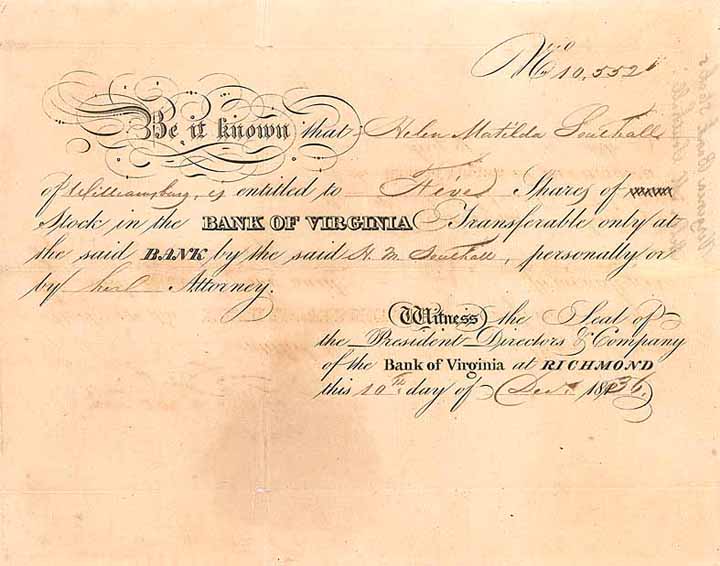 No 10,552
Be it known that Helen Matilda Southall
of Williamsburg, is entitled to Five Shares of
Stock in the BANK OF VIRGINIA Transferable only at
the said BANK by the said H. M. Southall, personally or
by her Attorney.
Witness the Seal of
the President Directors & Company
of the Bank of Virginia at RICHMOND
this 10th day of Decr. 1836.